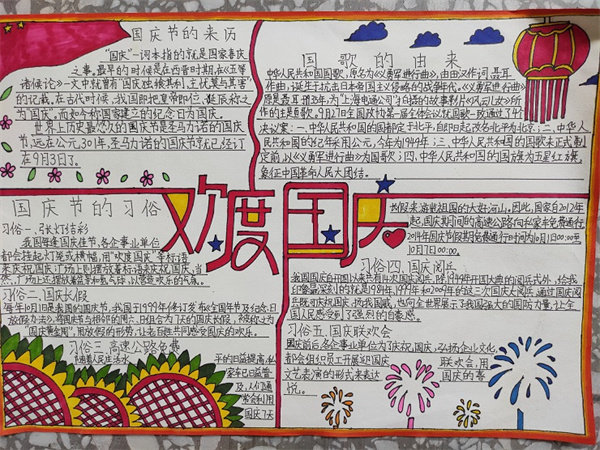 国庆节的来历
"国庆"一词本指的就是国家喜庆
之事。最早的时候是在西晋时期,在《五等
诸侯论》一文中就曾有"国庆独飨其利,主忧莫与其害"
的记载。在古代时候,我国即把皇帝即位、诞辰称之
为"国庆",而如今称国家建立的纪念日为国庆。
世界上历史最悠久的国庆节是圣马力诺的国庆
节,远在公元301年,圣马力诺的国庆节就已经订
在9月3日了。
国歌的由来
中华人民共和国国歌,原名为《义勇军进行曲》,由田汉作词、聂耳
作曲,诞生于抗击日本帝国主义侵略的战争年代。《义勇军进行曲》
原是聂耳1935年,为上海电通公司拍摄的故事影片《风云儿女》所
作的主题歌。9月27日全国政协第一届全体会议优国歌一致通过了4个
决议案:一、中华人民共和国的国都定于北平,自即日起改名北平为北京;二、中华人
民共和国的纪年采用公元,今年为1949年;三、中华人民共和国的国歌未正式制
定前,以《义勇军进行曲》为国歌;四、中华人民共和国的国旗为五星红旗,
象征中国革命人民大团结。
欢度国庆
国庆节的习俗
习俗一、张灯结彩
我国每逢国庆佳节,各企事业单位
都会挂起灯笼或横幅,用"欢度国庆"等标语
来庆祝国庆,广场上则摆放着标语来庆祝国庆,当
然,广场上还摆放着花卉和氢气球,以营造欢乐的气氛。
习俗二、国庆长假
每年10月1日是我国的国庆节,我国于1999年修订发布《全国年节及纪念日
放假办法》,将国庆节与相邻的周六、周日组合为7天的国庆长假,被称之为
"国庆黄金周",用放假的形势,让老百姓共同感受国庆的欢乐。
习俗三、高速公路免费
随着人民生活水
平的日益提高,私
家车已日益普
及,人们通
常会利用
国庆7天
长假来游览祖国的大好河山。因此,国家自2012年
起,国庆期间的高速公路向私家车免费通行,
2014年国庆节假期免费通行时间为10月1日00:00至
10月7日00:00。
习俗四、国庆阅兵
习俗五、国庆联欢会
国庆前后,各企事业单位为了庆祝国庆、弘扬企业文化
都会组织员工开展迎国庆 联欢会,用
文艺表演的形式来表达 国庆的喜
悦。